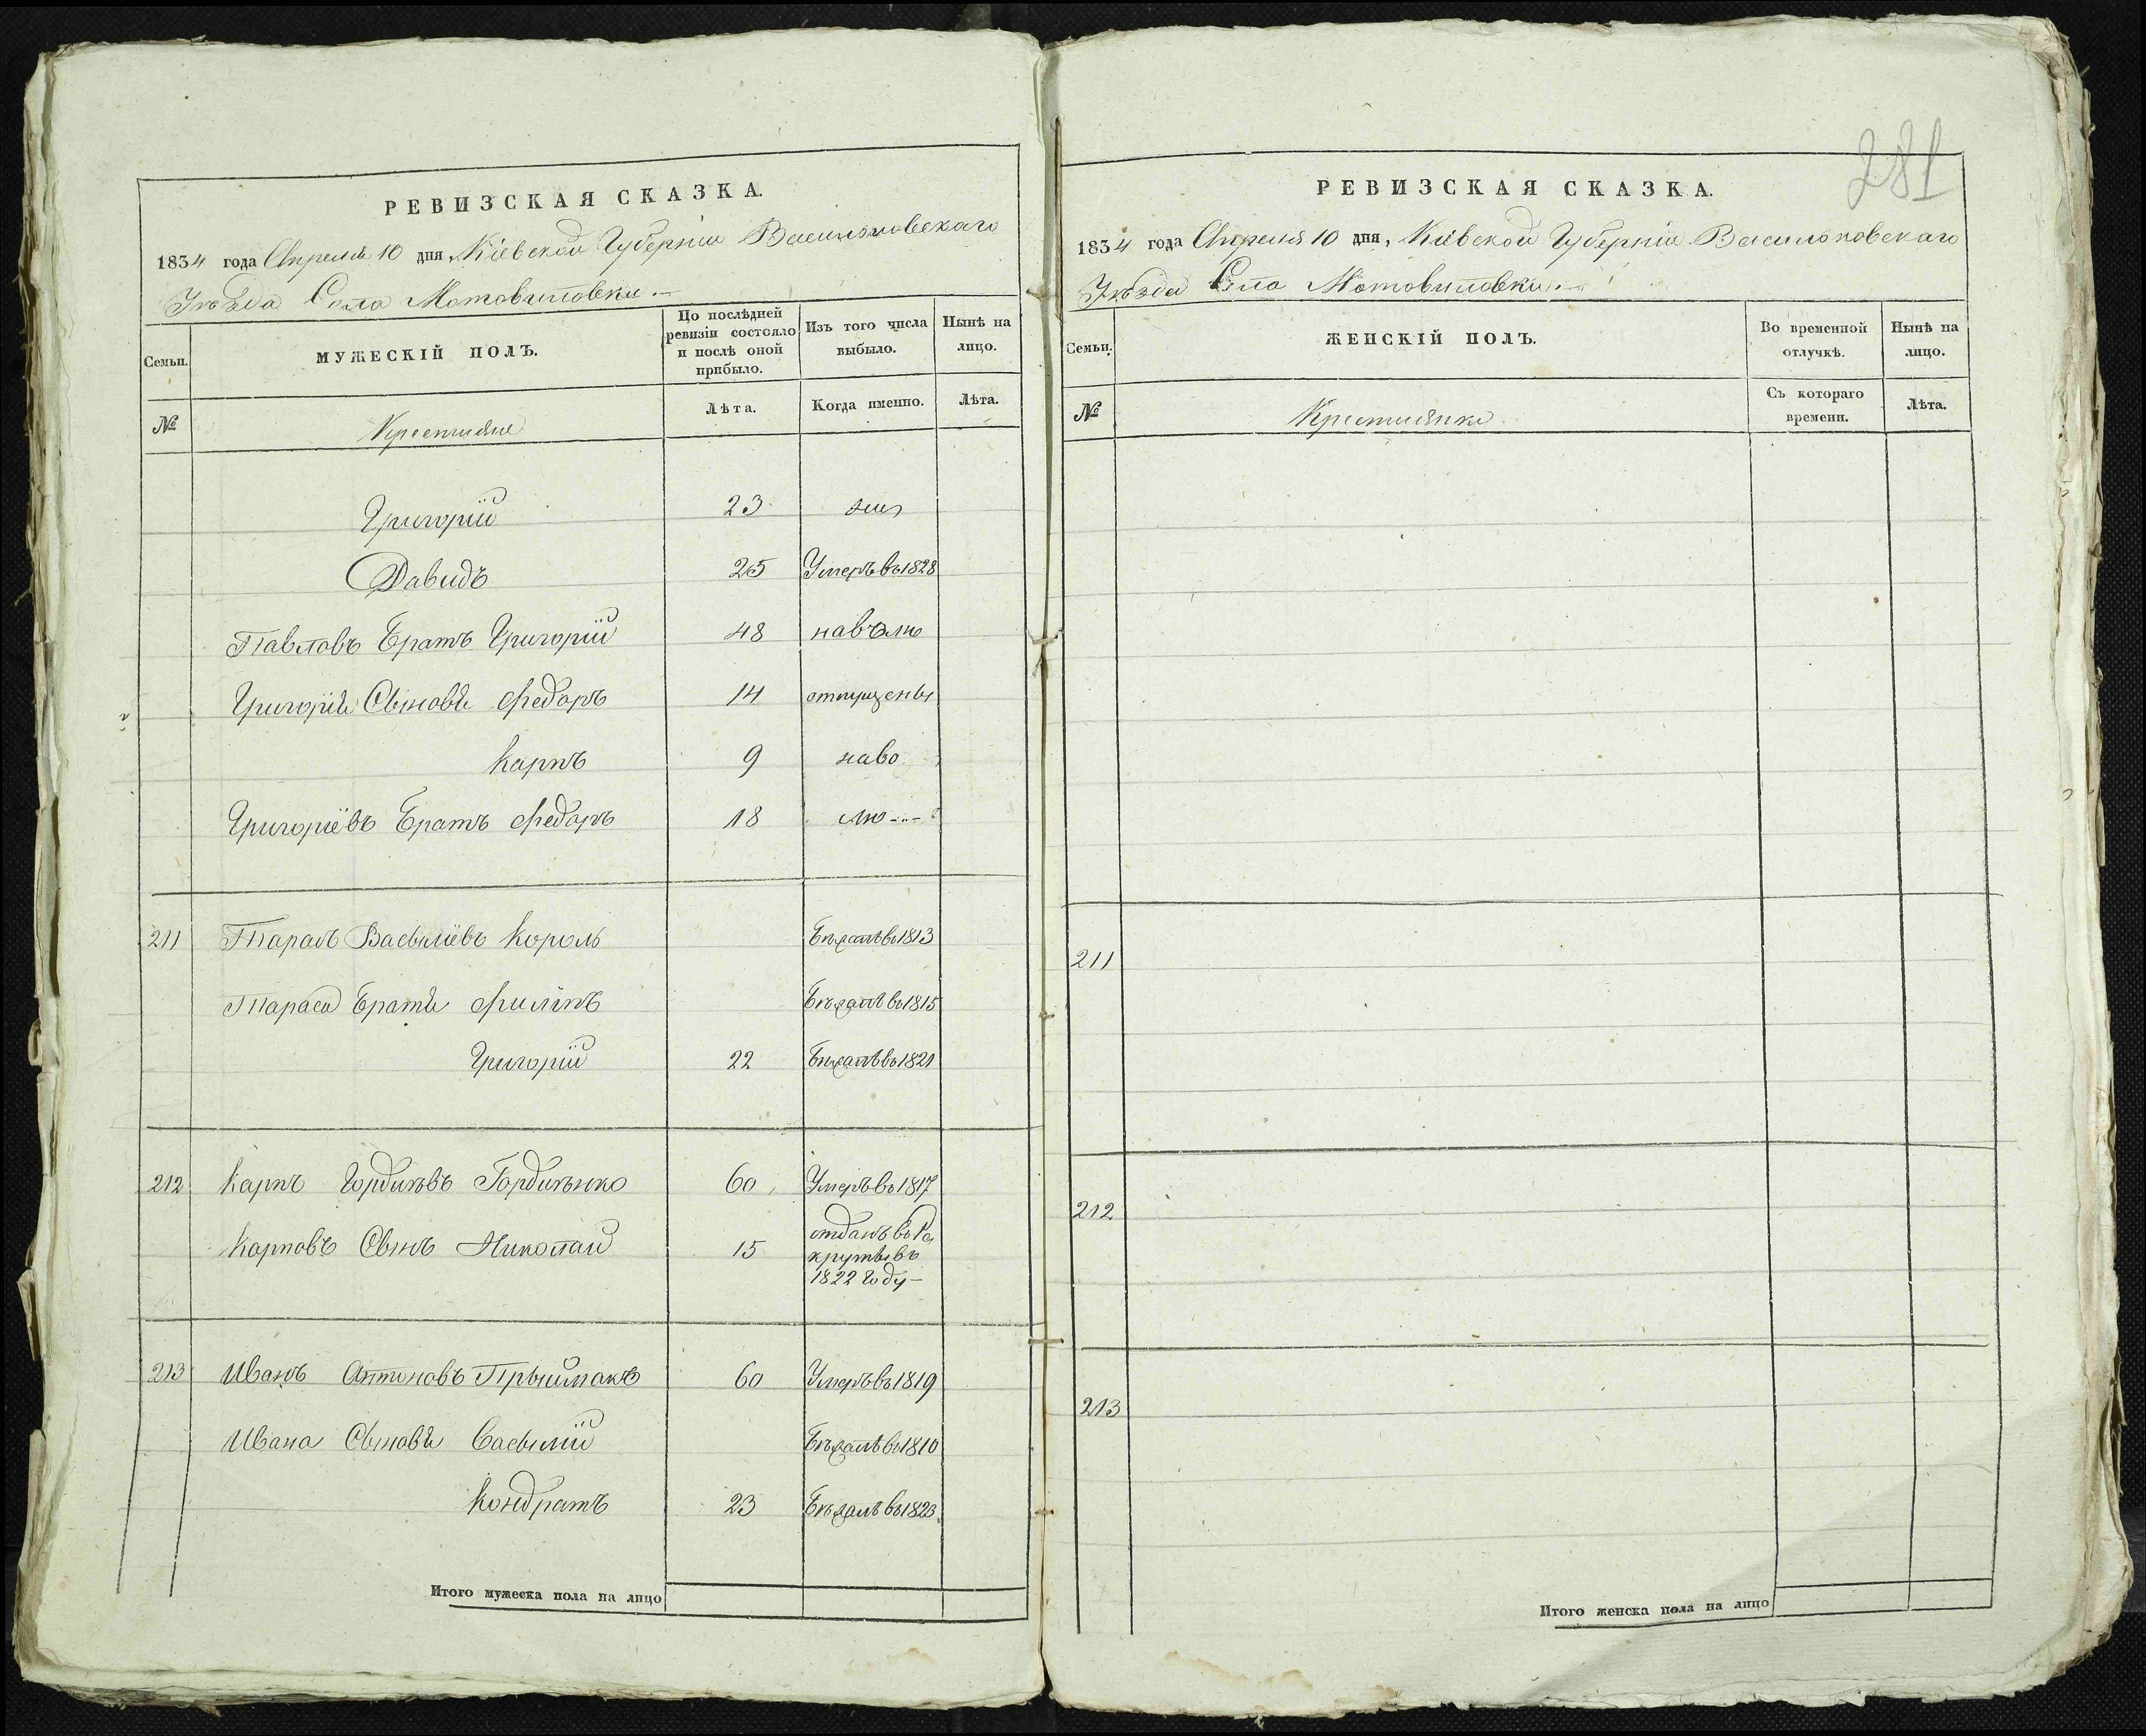 РЕВИЗСКАЯ СКАЗКА.
1834 года Апреля 10 дня, Кіевской Губерніи Васильковскаго
Уѣзда Села Мотовиловки.
Семьи.
МУЖЕСКІЙ ПОЛЪ.
По послѣдней
ревизіи состояло
и послѣ оной
прибыло.
Изъ того числа
выбыло.
Нынѣ на
лицо.
№
Крестьяне
Лѣта.
Когда именно.
Лѣта.
Григорій 23
Давидъ 25 Умеръ въ 1828
Павловъ Братъ Григорій 48
Григорія Сыновья Федоръ 14 отпущены
Карпъ 9 на во
Григоріевъ Братъ Федоръ 18 лю
211 Тарасъ Васыліевъ Король Бѣжалъ въ 1813
Тараса Братья Филипъ Бѣжалъ въ 1815
Григорій 22 Бѣжалъ въ 1821
212 Карпъ Гордиевъ Гордиенко 60 Умеръ въ 1817
Карповъ Сынъ Николай 15 отданъ въ Ре
круты въ
1822 Году
213 Иванъ Антоновъ Прыймакъ 60 Умеръ въ 1819
Ивана Сыновья Васылій Бѣжалъ въ 1810
Кондратъ 23 Бѣжалъ въ 1823
Итого мужеска пола на лицо
281
РЕВИЗСКАЯ СКАЗКА.
1834 года Апреля 10 дня, Кіевской Губерніи Васильковскаго
Уѣзда Села Мотовиловки.
Семьи.
ЖЕНСКІЙ ПОЛЪ.
Во временной
отлучкѣ.
Нынѣ на
лицо.
№
Крестьянки
Съ котораго
времени.
Лѣта.
211
212
213
Итого женска пола на лицо